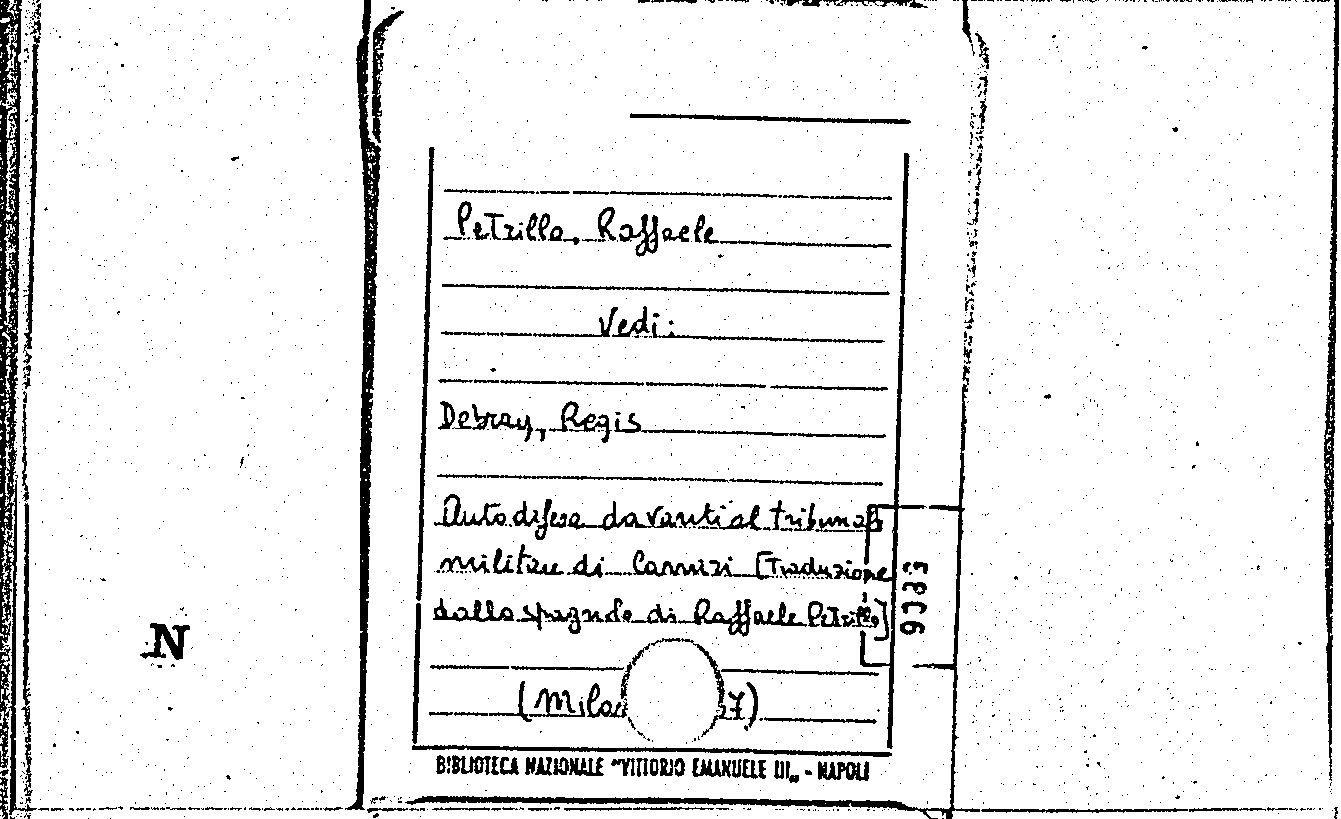 Petrillo, Raffaele
Vedi:
Debray, Regis
Autodifesa davanti al tribunale
militare di Camiri [Traduzione
dallo spagnolo di Raffaele Petrillo]
(Mila 7)
BIBLIOTECA NAZIONALE "VITTORIO EMANUELE III„ - NAPOLI
N